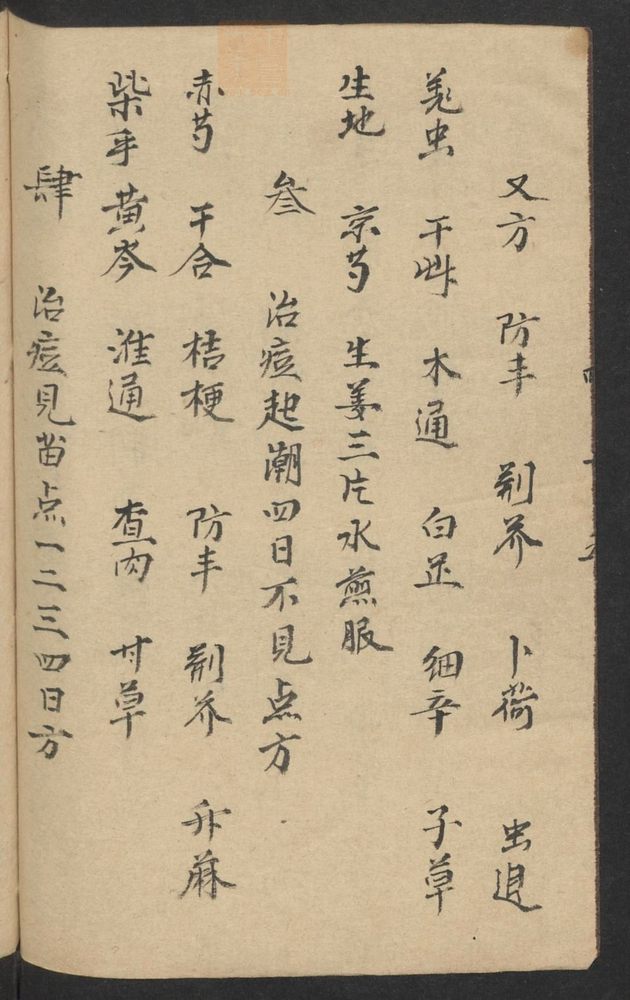 又方 防丰 荆芥 卜荷 虫退
羌虫 干艸 木通 白芷 细辛 子草
生地 京芍 生姜三片水煎服
叁 治痘起潮四日不见点方
赤芍 干合 桔梗 防丰 荆芥 升麻
柴乎 黄芩 淮通 查肉 甘草
肆 治痘见苗点一二三四日方